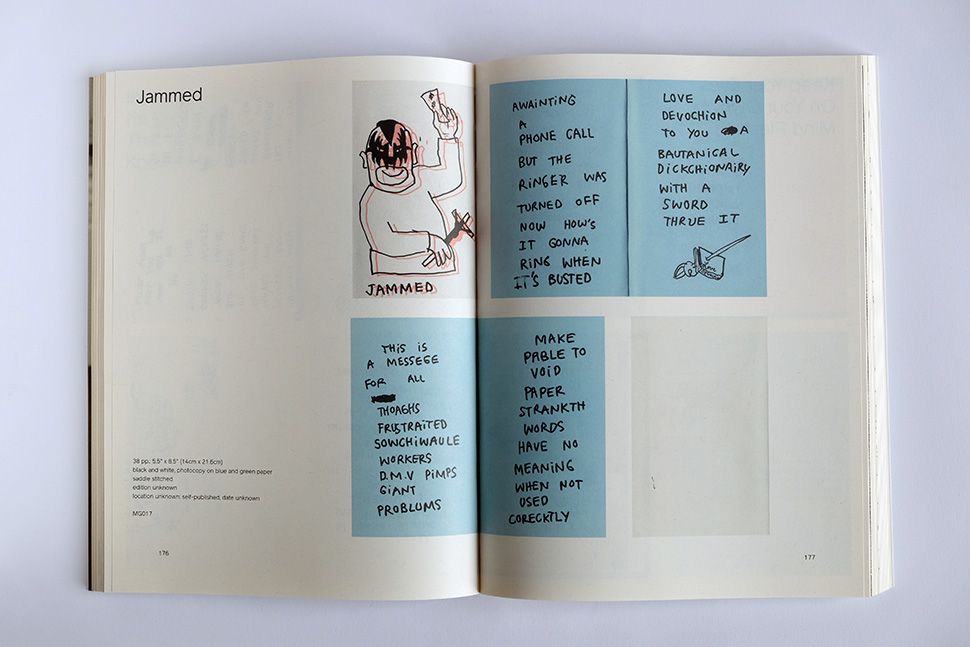 Jammed
JAMMED
AWAINTING
A
PHONE CALL
BUT THE
RINGER WAS
TURNED OFF
NOW HOW'S
IT GONNA
RING WHEN
IT'S BUSTED
LOVE AND
DEVOCHION
TO YOU A
BAUTANICAL
DICKCHIONAIRY
WITH A
SWORD
THRUE IT
THIS IS
A MESSEGE
FOR ALL
THOAGHS
FRUSTRAITED
SOWCHIWAULE
WORKERS
D.M.V PIMPS
GIANT
PROBLUMS
MAKE
PABLE TO
VOID
PAPER
STRANKTH
WORDS
HAVE NO
MEANING
WHEN NOT
USED
CORECKTLY
38 pp. 5.5" x 8.5" (14cm x 21.6cm)
black and white, photocopy on blue and green paper
saddle stitched
edition unknown
location unknown: self-published, date unknown
MG017
176
177